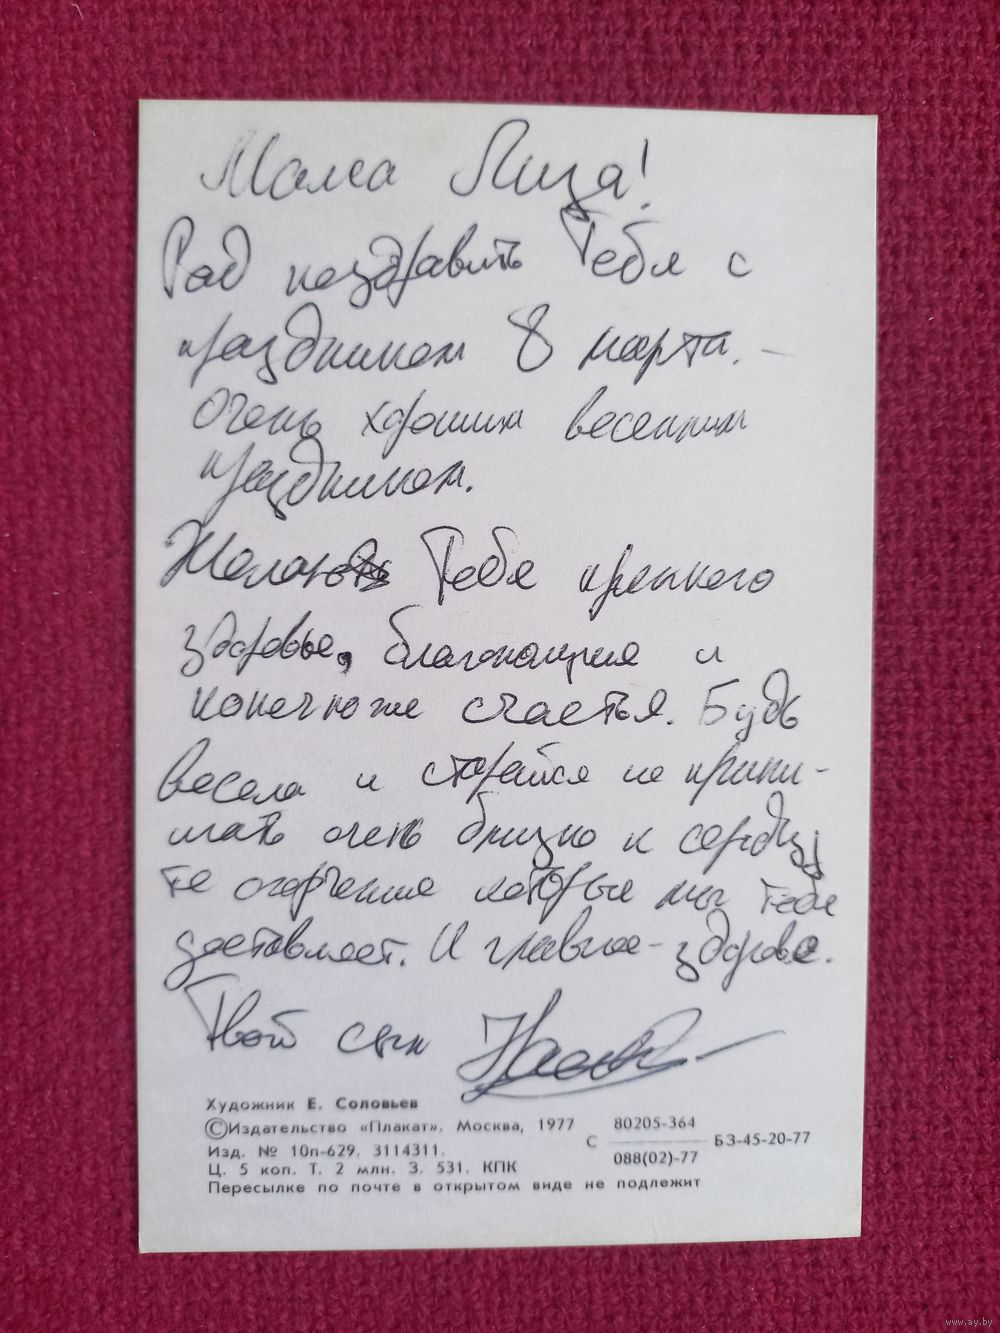 Мама Лиза!
Рад поздравить Тебя с
праздником 8 марта. –
очень хорошим весенним
праздником.
Желаю Тебе крепкого
здоровья, благополучия и
конечно же счастья. Будь
весела и старайся не прини-
мать очень близко к сердцу
те огорчения которые мы тебе
доставляет. И главное – здоровье.
Твой сын
Художник Е. Соловьев
©Издательство «Плакат». Москва, 1977
Изд. № 10п-629. 3114311.
Ц. 5 коп. Т. 2 млн. З. 531. КПК
Пересылке по почте в открытом виде не подлежит
С 80205-364 БЗ-45-20-77
088(02)-77
www.ay.by